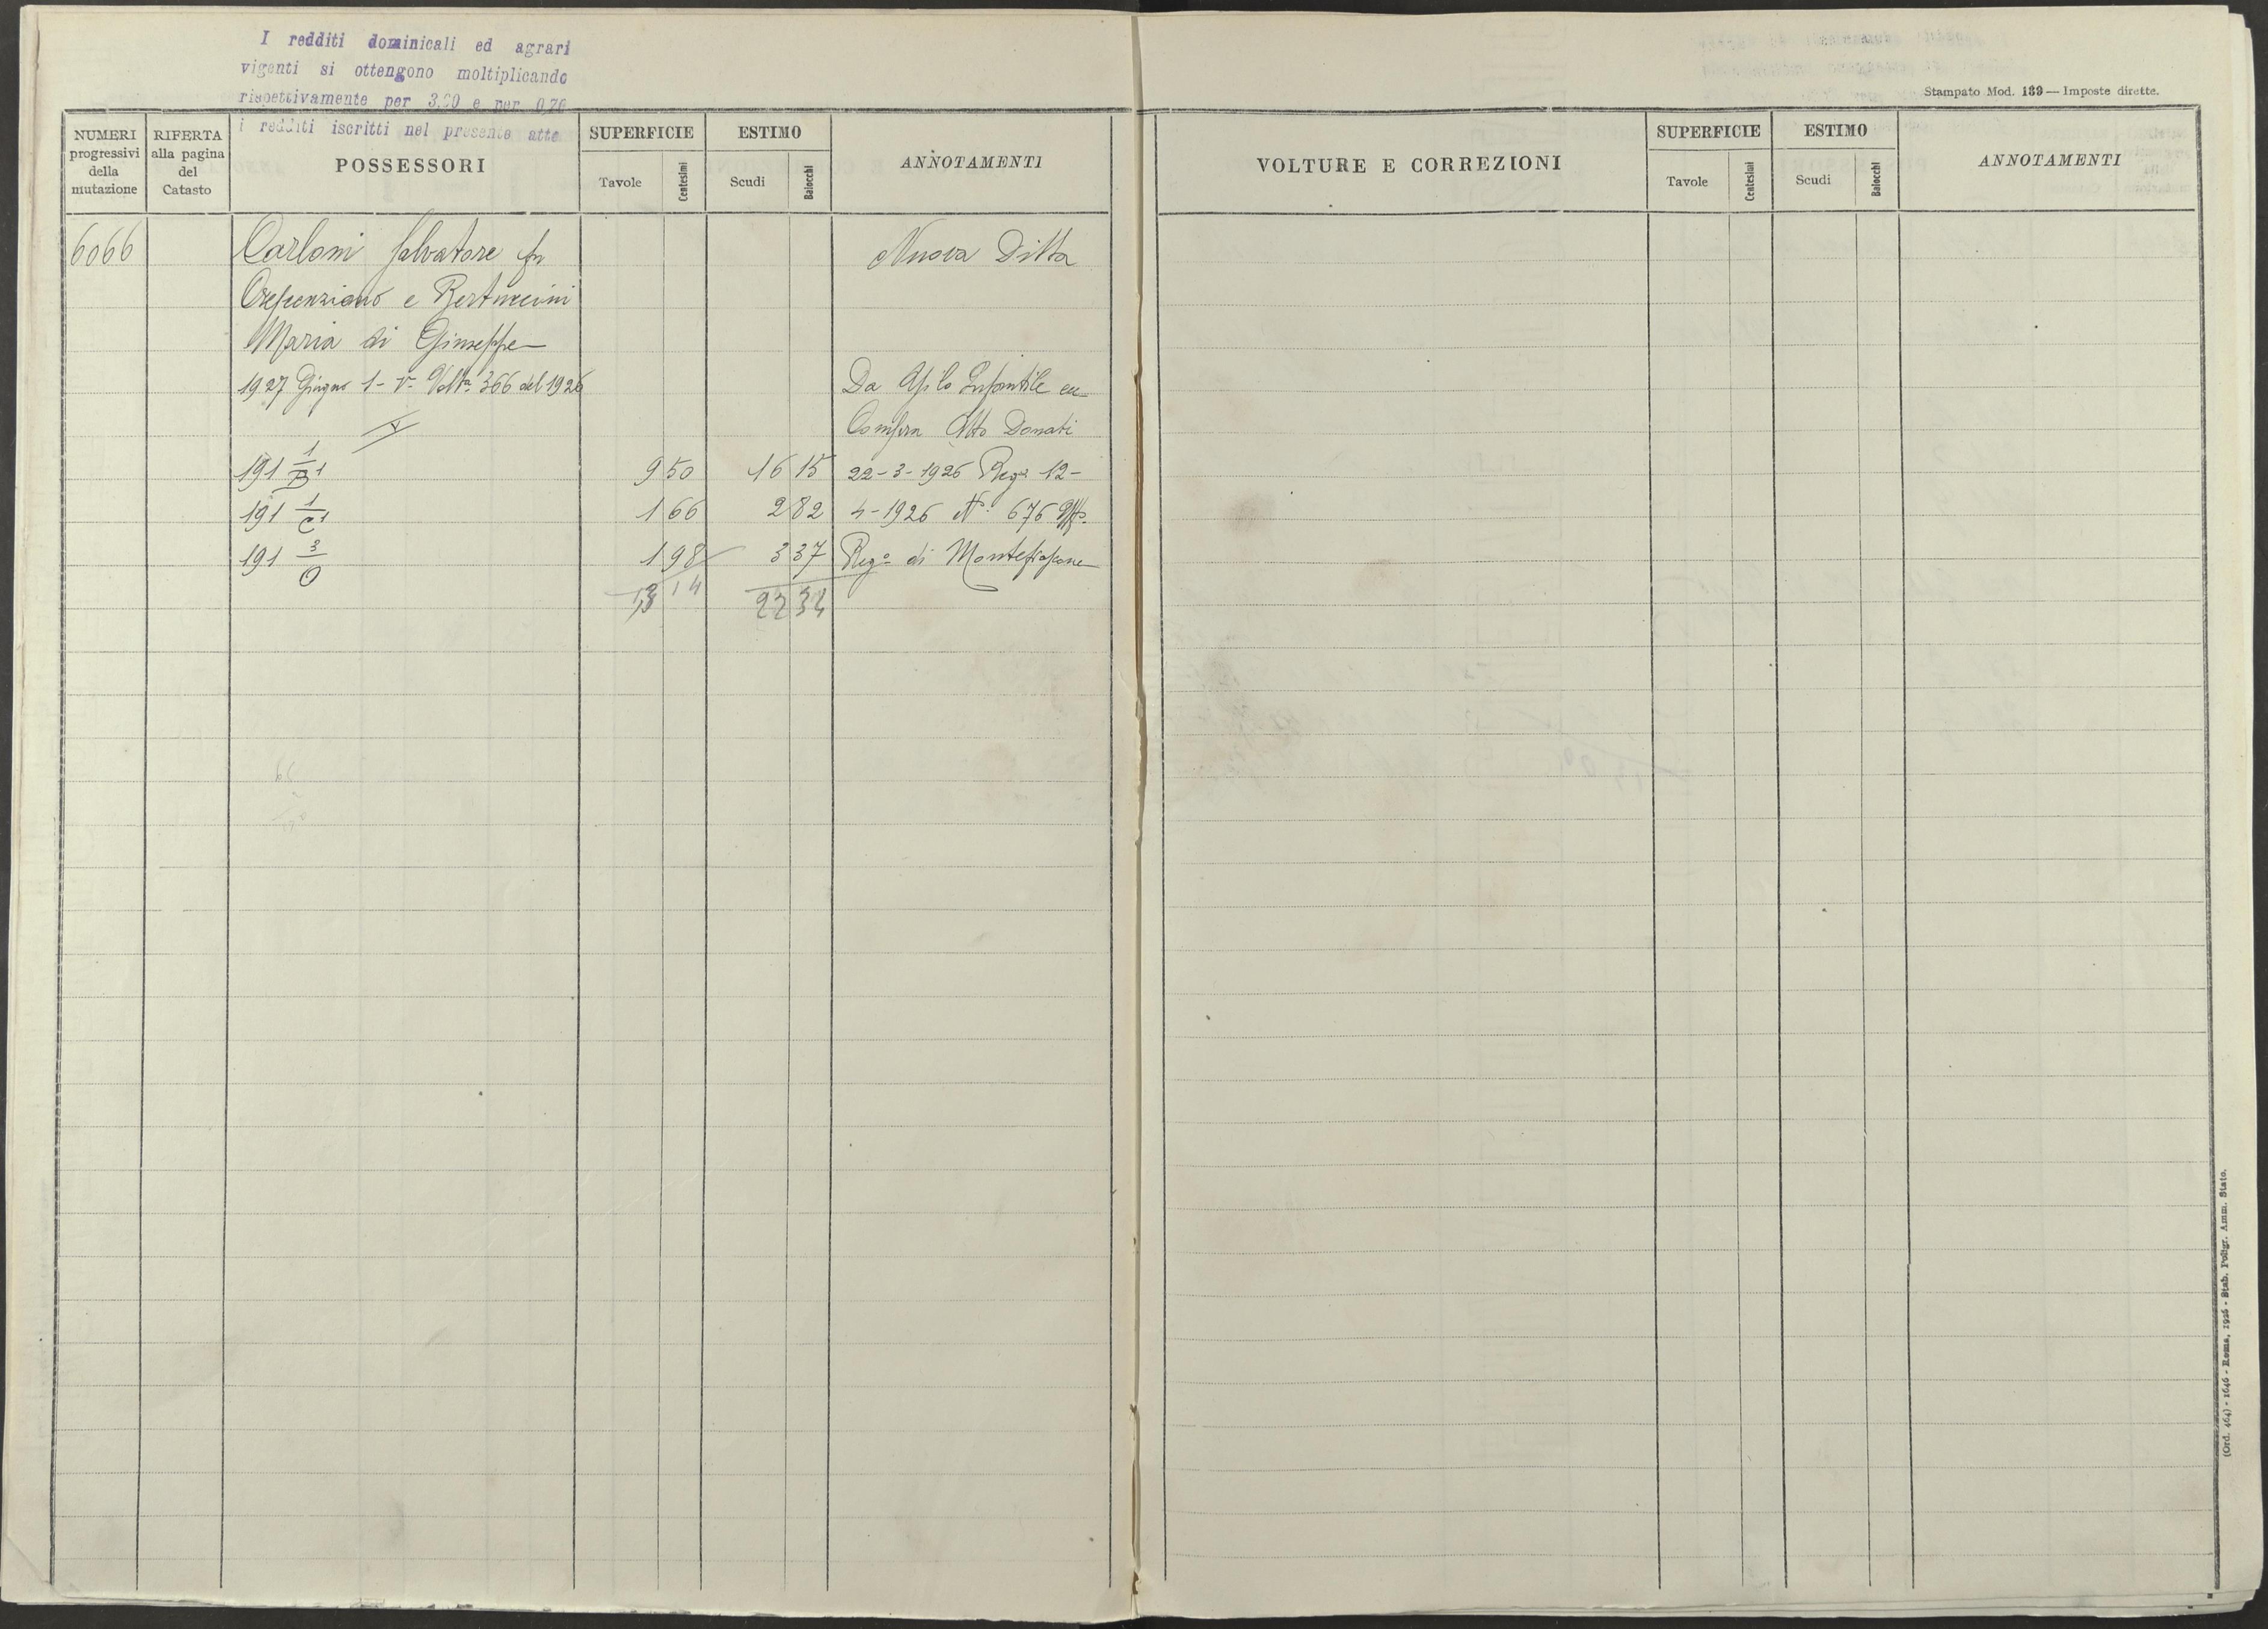 I redditi dominicali ed agrari
vigenti si ottengono moltiplicando
rispettivamente per 3.00 e per 0,70
i redditi iscritti nel presente atto
Stampato Mod. 139 — Imposte dirette.
NUMERI progressivi della mutazione
RIFERTA alla pagina del Catasto
POSSESSORI
SUPERFICIE
Tavole
Centesimi
ESTIMO
Scudi
Baiocchi
ANNOTAMENTI
6066 Carloni Salvatore fu Nuova Ditta
Crescenziano e Bertuccini
Maria di Giuseppe
1927 Giugno 1- Volta 366 del 1926 Da Asilo Infantile
Compra Atto Donati
191 1/B1 9 50 16 15 22-3-1926 Rego 12-
191 1/C1 1 66 2 82 4-1926 N. 676
191 3/O 1 98 3 37 Rego di Montefiascone
13 14 22 34
VOLTURE E CORREZIONI
SUPERFICIE
Tavole
Centesimi
ESTIMO
Scudi
Baiocchi
ANNOTAMENTI
(Ord. 464) - 1646 - Roma, 1926 - Stab. Poligr. Amm. Stato.